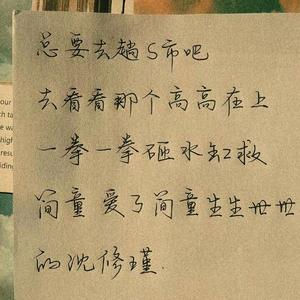 总要去趟S市吧
去看看那个高高在上
一拳一拳砸水缸救
简童 爱了简童生生世世
的沈修瑾.
our
ch ta
e wa
high
resu
iding